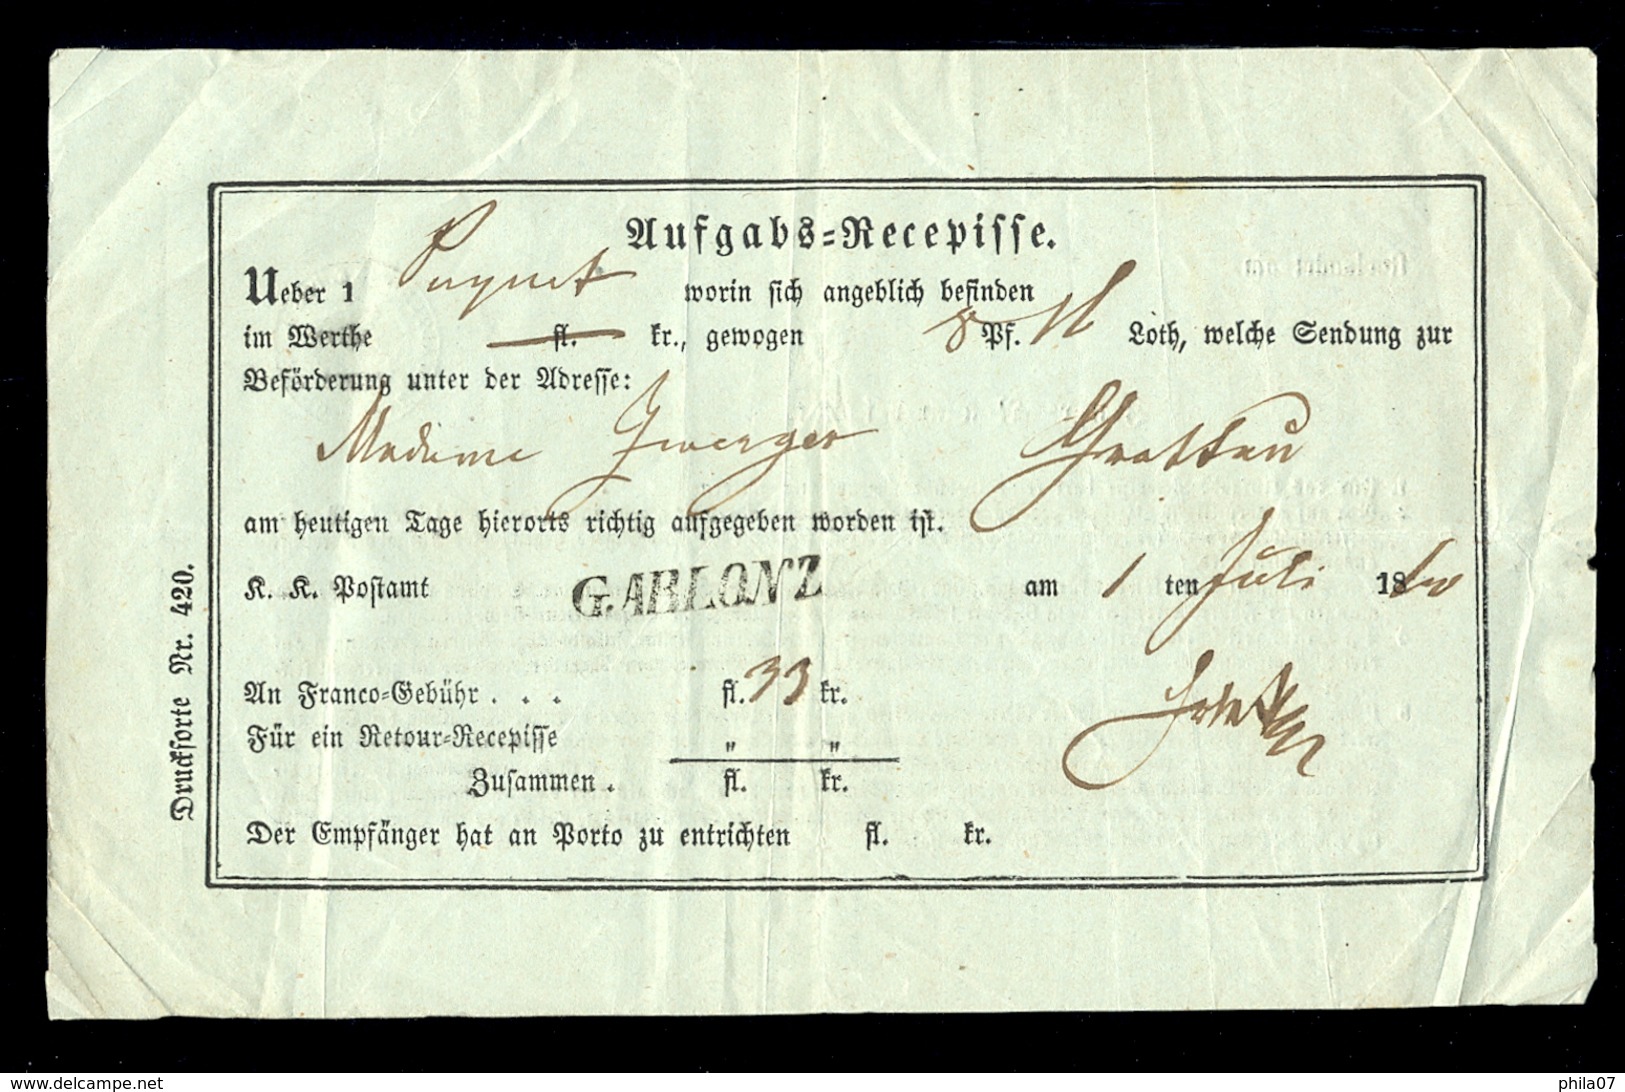 Aufgabs-Recepisse.
Ueber 1 Paquet worin sich angeblich befinden
im Werthe fl. kr., gewogen 8 Pf. Loth, welche Sendung zur
Beförderung unter der Adresse:
Madame Zwerger Grottau
am heutigen Tage hierorts richtig aufgegeben worden ist.
K. K. Postamt GABLONZ am 1 ten Juli 18
An Franco-Gebühr . . . fl. 33 kr.
Für ein Retour-Recepisse " "
Zusammen . fl. kr.
Der Empfänger hat an Porto zu entrichten fl. kr.
Drucksorte Nr. 420.
www.delcampe.net
phila07